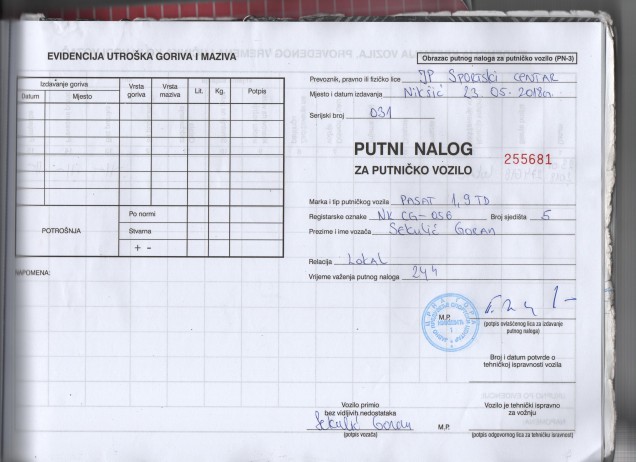 EVIDENCIJA UTROŠKA GORIVA I MAZIVA
Izdavanje goriva
Datum Mjesto Vrsta goriva Vrsta maziva Lit. Kg. Potpis
POTROŠNJA
Po normi
Stvarna
+ -
NAPOMENA:
Obrazac putnog naloga za putničko vozilo (PN-3)
Prevoznik, pravno ili fizičko lice JP SPORTSKI CENTAR
Mjesto i datum izdavanja Nikšić 23 05. 2018
Serijski broj 031
PUTNI NALOG
ZA PUTNIČKO VOZILO
255681
Marka i tip putničkog vozila PASAT 1,9 TD
Registarske oznake NK CG-056 Broj sjedišta 5
Prezime i ime vozača Sekulić Goran
Relacija LOKAL
Vrijeme važenja putnog naloga 24 h
M.P.
(potpis ovlašćenog lica za izdavanje
putnog naloga)
Broj i datum potvrde o
tehničkoj ispravnosti vozila
Vozilo primio
bez vidljivih nedostataka
Sekulić Goran
(potpis vozača)
Vozilo je tehnički ispravno
za vožnju
M.P.
(potpis odgovornog lica za tehničku isravnost)